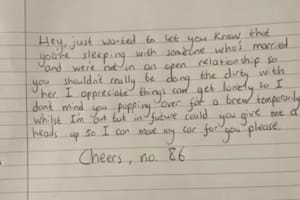 Hey, just wanted to let you know that
you're sleeping with someone who's married
and were not in an open relationship so
you shouldn't really be doing the dirty with
her I appreciate things can get lonely so I
dont mind you popping over for a brew temporarily
whilst I'm out but in future could you give me a
heads up so I can move my car for you please.
Cheers, no. 86